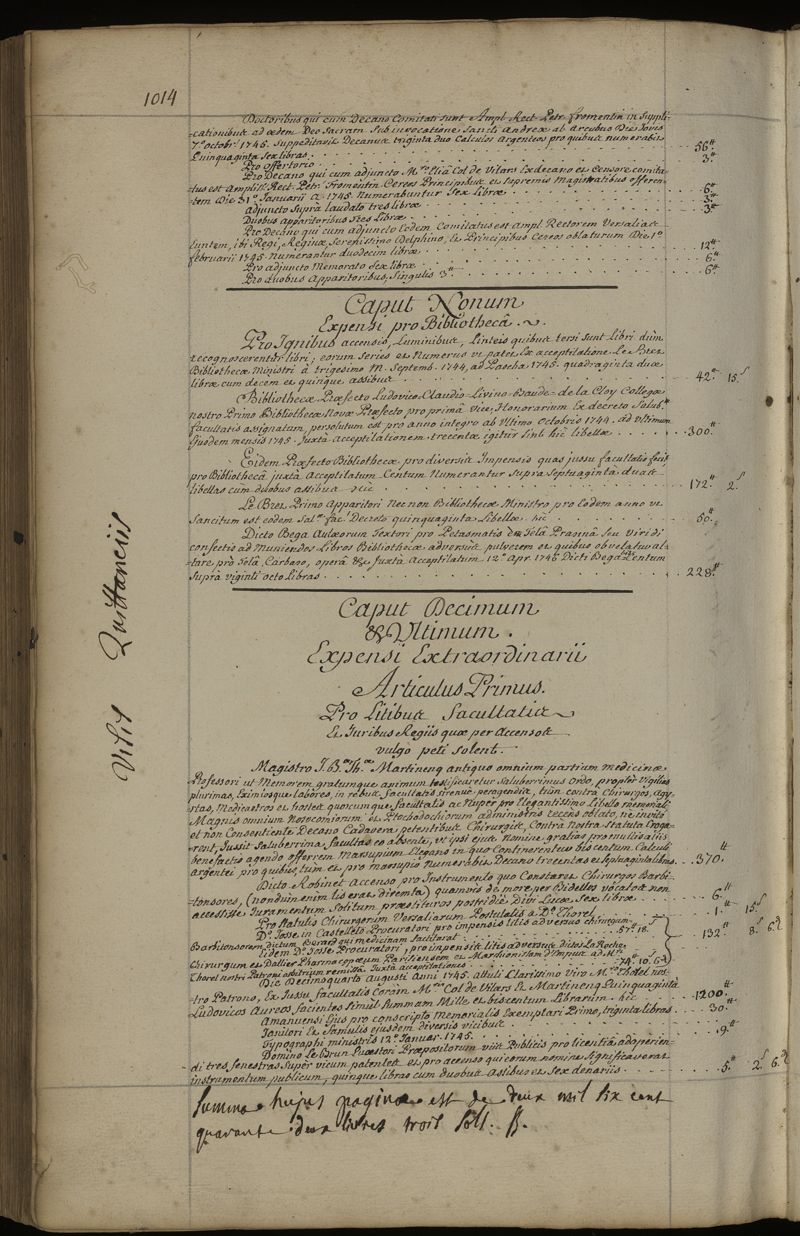 1014
Doctoribus qui cum Decano Comitati sunt Ampl. Rect. Petr. fromentin in Suppli-
-cationibus ad ædem Deo Sacram Sub invocatione Sancti Andreæ ab Arcubus Die Jovis
7ª octobr. 1745. Suppeditavit Decanus triginta duo Calculos Argenteos pro quibus numerabis
Quinquaginta Sex libras . 56.tt
Pro offertorio . 3.tt
Pro Decano qui cum adjuncto M.ro Elia Col de Vilars Exdecano et Censore comita-
tus est Ampliss. Rect. Petr. Fromentin Cereos Principibus et Supremis Magistratibus offeren-
tem Die 31ª Januarii A. 1745. Numerabuntur Sex libræ . 6.tt
Adjuncto Supra laudato tres libræ . 3.tt
Duobus Apparitoribus Tres Libræ . 3.tt
Pro Decano qui cum adjuncto Eodem Comitatus est Ampl. Rectorem Versalias
Euntem, ibi Regi, Reginæ, Serenissimo Delphino, et Principibus Cereos oblaturum Die 1ª
februarii 1745. Numerantur duodecim libræ . 12.tt
Pro adjuncto Memorato Sex libræ . 6.tt
Pro duobus Apparitoribus, Singulis 3.tt . 6.tt
Caput Nonum
Expensi pro Bibliothecâ.
Pro Ignibus accensis, Luminibus, Linteis quibus tersi sunt Libri dùm
recognoscerentur libri; eorum Series et Numerus ut patet Ex acceptilatione Le Brez
Bibliothecæ Ministri à trigesimo M. Septemb. 1744. ad Pascha 1745. quadraginta duæ
libræ cum decem et quinque assibus . 42.tt 15.s
Bibliothecæ Præfecto Ludovico-Claudio-Livino-Baude-de la Cloy Collegæ
nostro Primo Bibliothecæ Novæ Præfecto, pro primâ Vice, Honorarium Ex decreto Salub.
facultatis assignatum, persolutum est pro anno integro ab Ultimo Octobris 1744. ad Ultimum
Ejusdem mensis 1745. Juxtà Acceptilationem. trecentæ igitur Sint hîc libellæ . 300.tt
Eidem Præfecto Bibliothecæ pro diversis Impensis quas jussu facultatis fecit
pro Bibliothecâ juxtà Acceptilatum Centum Numerantur Supra Septuaginta duas
libellas cum duobus assibus hîc . 172.tt 2.s
Le Brez Primo Apparitori Nec non Bibliothecæ Ministro pro Eodem anno ut
Sancitum est eodem Sal. fac. Decreto quinquaginta Libellæ hîc . 50.tt
Dicto Bega Aulæorum Textori pro Petasmatis Ex Telâ Prasinâ Seu Viridi
confectis ad Muniendos Libros Bibliothecæ adversus pulverem et quibus obvelatur al-
tare pro Telâ, Carbaso, operâ &c Juxtà Acceptilatum 12ª Apr. 1746 Dicti Bega Centum
Supra viginti octo Libras . 228.tt
Visis Quittanciis
Caput Decimum
& Ultimum.
Expensi Extraordinarii
Articulus Primus.
Pro Litibus facultatis
Et Juribus Regiis quæ per Accensos
vulgo peti Solent.
Magistro J. B. Th. Martinenq antiquo omnium partium medicinæ
Professori ut Memorem gratumque animum testificaretur Saluberrimus Ordo, propter Vigilias
plurimas, Eximiosque labores, in rebus facultatis strenuè peragendis, tùm contrà Chirurgos, Agyr-
tas, Medicastros et hostes quoscumque facultatis ac Nuper pro Elegantissimo Libello memoriali
Magnis omnium Nosocomiorum et Ptochodochiorum administris recens oblato, ne invito
et non Consentiente Decano Cadavera petentibus Chirurgis, Contrà Nostra Statuta Eroga-
-rent, Jussit Saluberrima facultas eo absente, ut ipsi ejus Nomine gratias pro multis illis
benefactis agendo offerrem Marsupium Elegans in quo Continerentur bis centum Calculi
Argentei pro quibus, tum et pro marsupio Numerabit Decano trecentas et Septuaginta libras . 370.tt
Dicto Robinet Accenso pro Instrumento quo Constaret Chirurgos Barbi-
tonsores, (nondum enim lis erat diremta) quamvis de more per Bidellos vocatos non
accessisse Juramentum Solitum præstituros postridie Divi Lucæ Sex libræ . 6.tt
Pro Statutis Chirurgorum Versaliarum Postulatis à D.º Thorel . 1.tt 15.s
D.º Josse in Castelleto Procuratori pro impensis litis adversus chirurgum
Barbitonsorem dictum Burard qui medicinam factitarat . 57.tt 18.s
Eidem D.º Josse Procuratori, pro impensis litis adversus Dictos La Roche
Chirurgum et Dallier Pharmacopæum Parisiensem
Thorel nostri Patroni arbitrium remissâ. Juxtà acceptilationes . 74.tt 10.s 6.d 132.tt 8.s 6.d
Die Decimoquarto Augusti Anni 1745. attuli Clarissimo Viro M.ro Thorel nos-
tro Patrono, Ex Jussu facultatis Coram M.ris Col de Vilars Et Martinenq Quinquaginta
Ludovicos Aureos facientes Simul Summam Mille et biscentum Librarum hîc . 1200.tt
Amanuensi Ejus pro conscripto Memorialis Exemplari Primo, triginta libras . 30.tt
Janitori Et famulis ejusdem diversis vicibus
Typographi ministris 12ª Januar. 1745. . 9.tt
Domino Le Brun Quæstori Præpositorum viis Publicis pro licentiâ adaperien-
di tres fenestras Super vicum patentes et pro accenso qui eorum nomine Significaverat
instrumentum publicum, quinque libras cum duobus assibus et Sex denariis . 5.tt 2.s 6.d
Summa hujus paginæ est de deux mil six cent
quarante deux livres trois sols. ff.